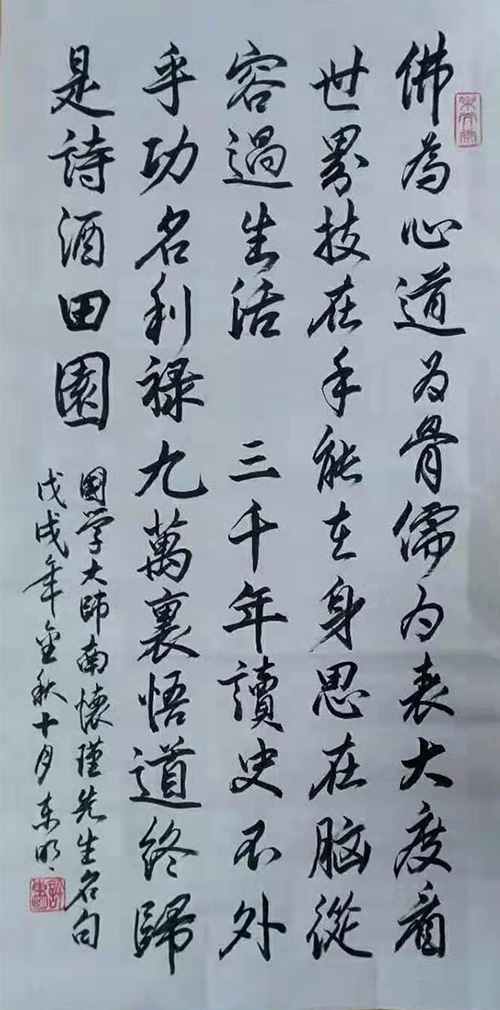 佛為心道为骨儒为表大度看
世界技在手能在身思在脑從
容過生活 三千年讀史不外
乎功名利禄九萬裏悟道終歸
是詩酒田園
國学大師南懷瑾先生名句
戊戌年金秋十月东明